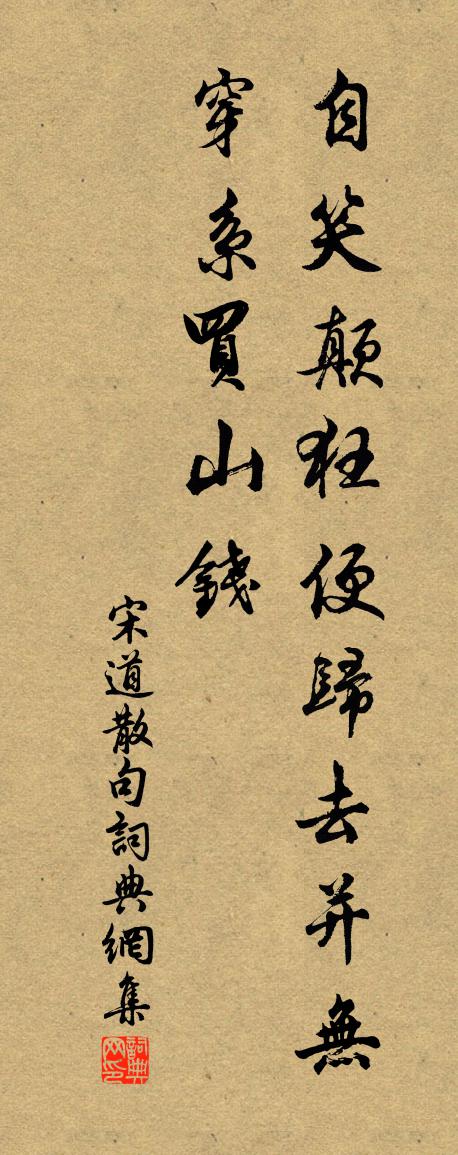 自笑顛狂便歸去并無
穿系買山錢
宋道散句詞典網集
詞典网印